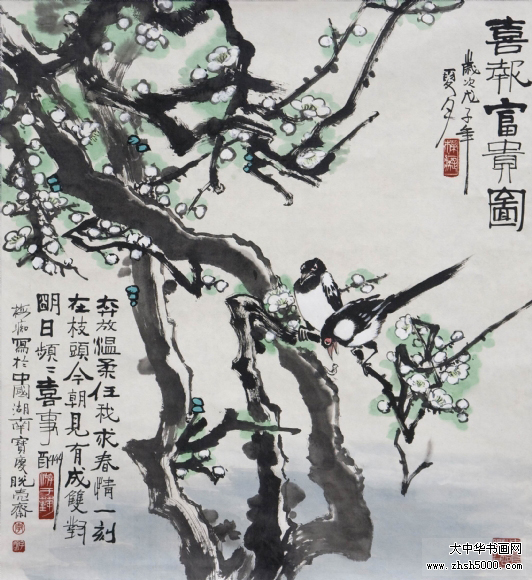 喜報富貴圖
歲次戊子年
夏夕
奔放溫柔任我求春情一刻
在枝頭今朝見有成雙對
明日頻頻喜事酬
梅痴寫於中國湖南寶慶晚亮齋
大中华书画网
www.zhsh5000.com